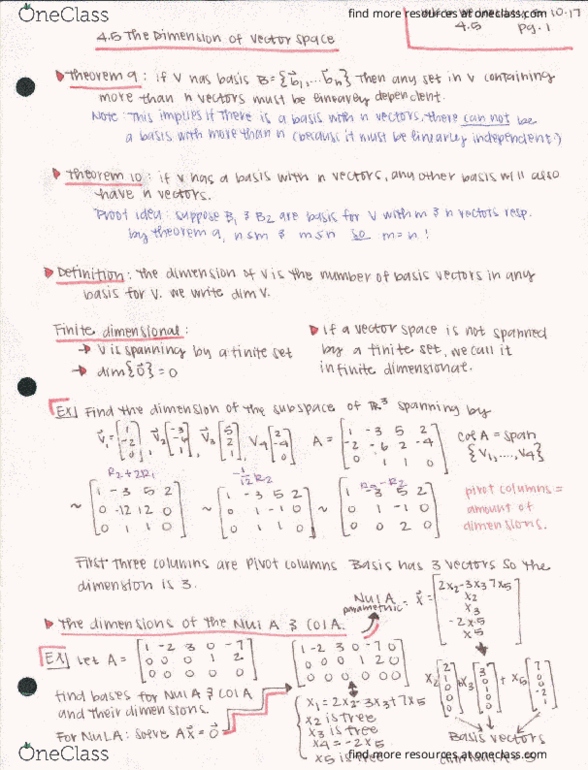 OneClass
find more resources at oneclass.com
10.17
4.5 pg. 1
4.5 The Dimension of Vector Space
Theorem 9: if V has basis B = {b⃗₁,...b⃗ₙ} Then any set in V containing
more than n vectors must be linearly dependent.
Note: This implies if there is a basis with n vectors, there can not be
a basis with more than n (because it must be linearly independent.)
Theorem 10: if V has a basis with n vectors, any other basis will also
have n vectors.
Proof idea: suppose B₁ & B₂ are basis for V with m & n vectors resp.
by theorem 9, n≤m & m≤n so m=n!
Definition: The dimension of V is the number of basis vectors in any
basis for V. we write dim V.
Finite dimensional:
→ V is spanning by a finite set
→ dim{0⃗} = 0
if a vector space is not spanned
by a finite set, we call it
infinite dimensional.
EX Find the dimension of the subspace of ℝ³ spanning by
V⃗₁ = [1 -2 0], V⃗₂ [-3 -6 1], V⃗₃ [5 2 1], V₄ [2 -4 0] A = [1 -3 5 2
-2 -6 2 -4
0 1 1 0]
col A = span
{V₁,...,V₄}
R₂+2R₁
~ [1 -3 5 2
0 -12 12 0
0 1 1 0]
-1/12 R₂
~ [1 -3 5 2
0 1 -1 0
0 1 1 0]
R₃-R₂
~ [1 -3 5 2
0 1 -1 0
0 0 2 0]
pivot columns =
amount of
dimensions.
First three columns are pivot columns Basis has 3 vectors so the
dimension is 3.
The dimensions of the Nul A & Col A.
Nul A
parametric: x⃗ = [2x₂-3x₃ 7x₅
x₂
x₃
-2x₅
x₅]
EX Let A = [1 -2 3 0 -7
0 0 0 1 2
0 0 0 0 0]
[1 -2 3 0 -7 0
0 0 0 1 2 0
0 0 0 0 0 0]
find bases for Nul A & Col A
and their dimensions.
For Nul A: solve Ax⃗ = 0⃗
x₁ = 2x₂-3x₃+7x₅
x₂ is free
x₃ is free
x₄ = -2x₅
x₅ is free
x₂ [2 1 0 0 0] + x₃ [3 0 1 0 0] + x₅ [7 0 0 -2 1]
Basis vectors
OneClass
find more resources at oneclass.com